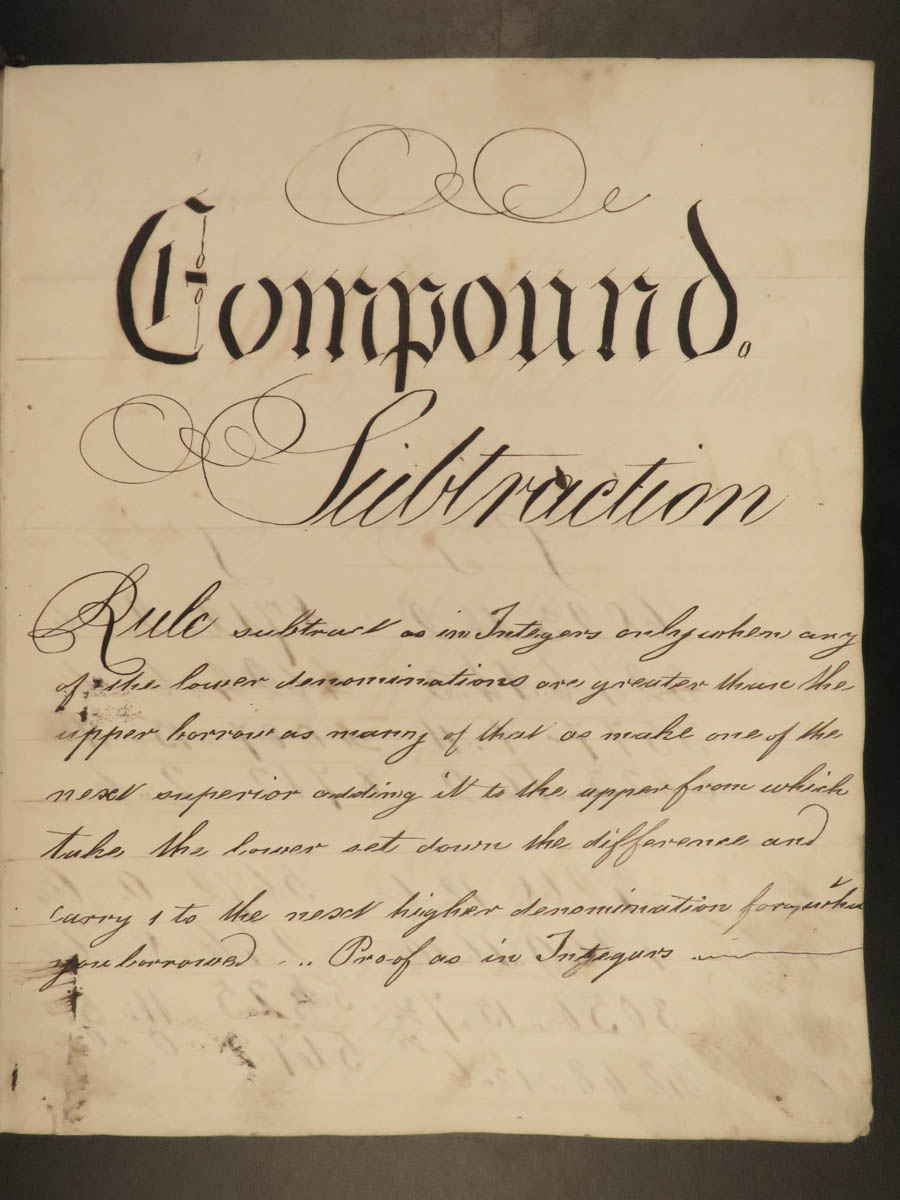 Compound.
Subtraction
Rule subtract as in Integers only when any
of the lower denominations are greater than the
upper borrow as many of that as make one of the
next superior adding it to the upper from which
take the lower set down the difference and
carry 1 to the next higher denomination for
you borrowed ... Proof as in Integers